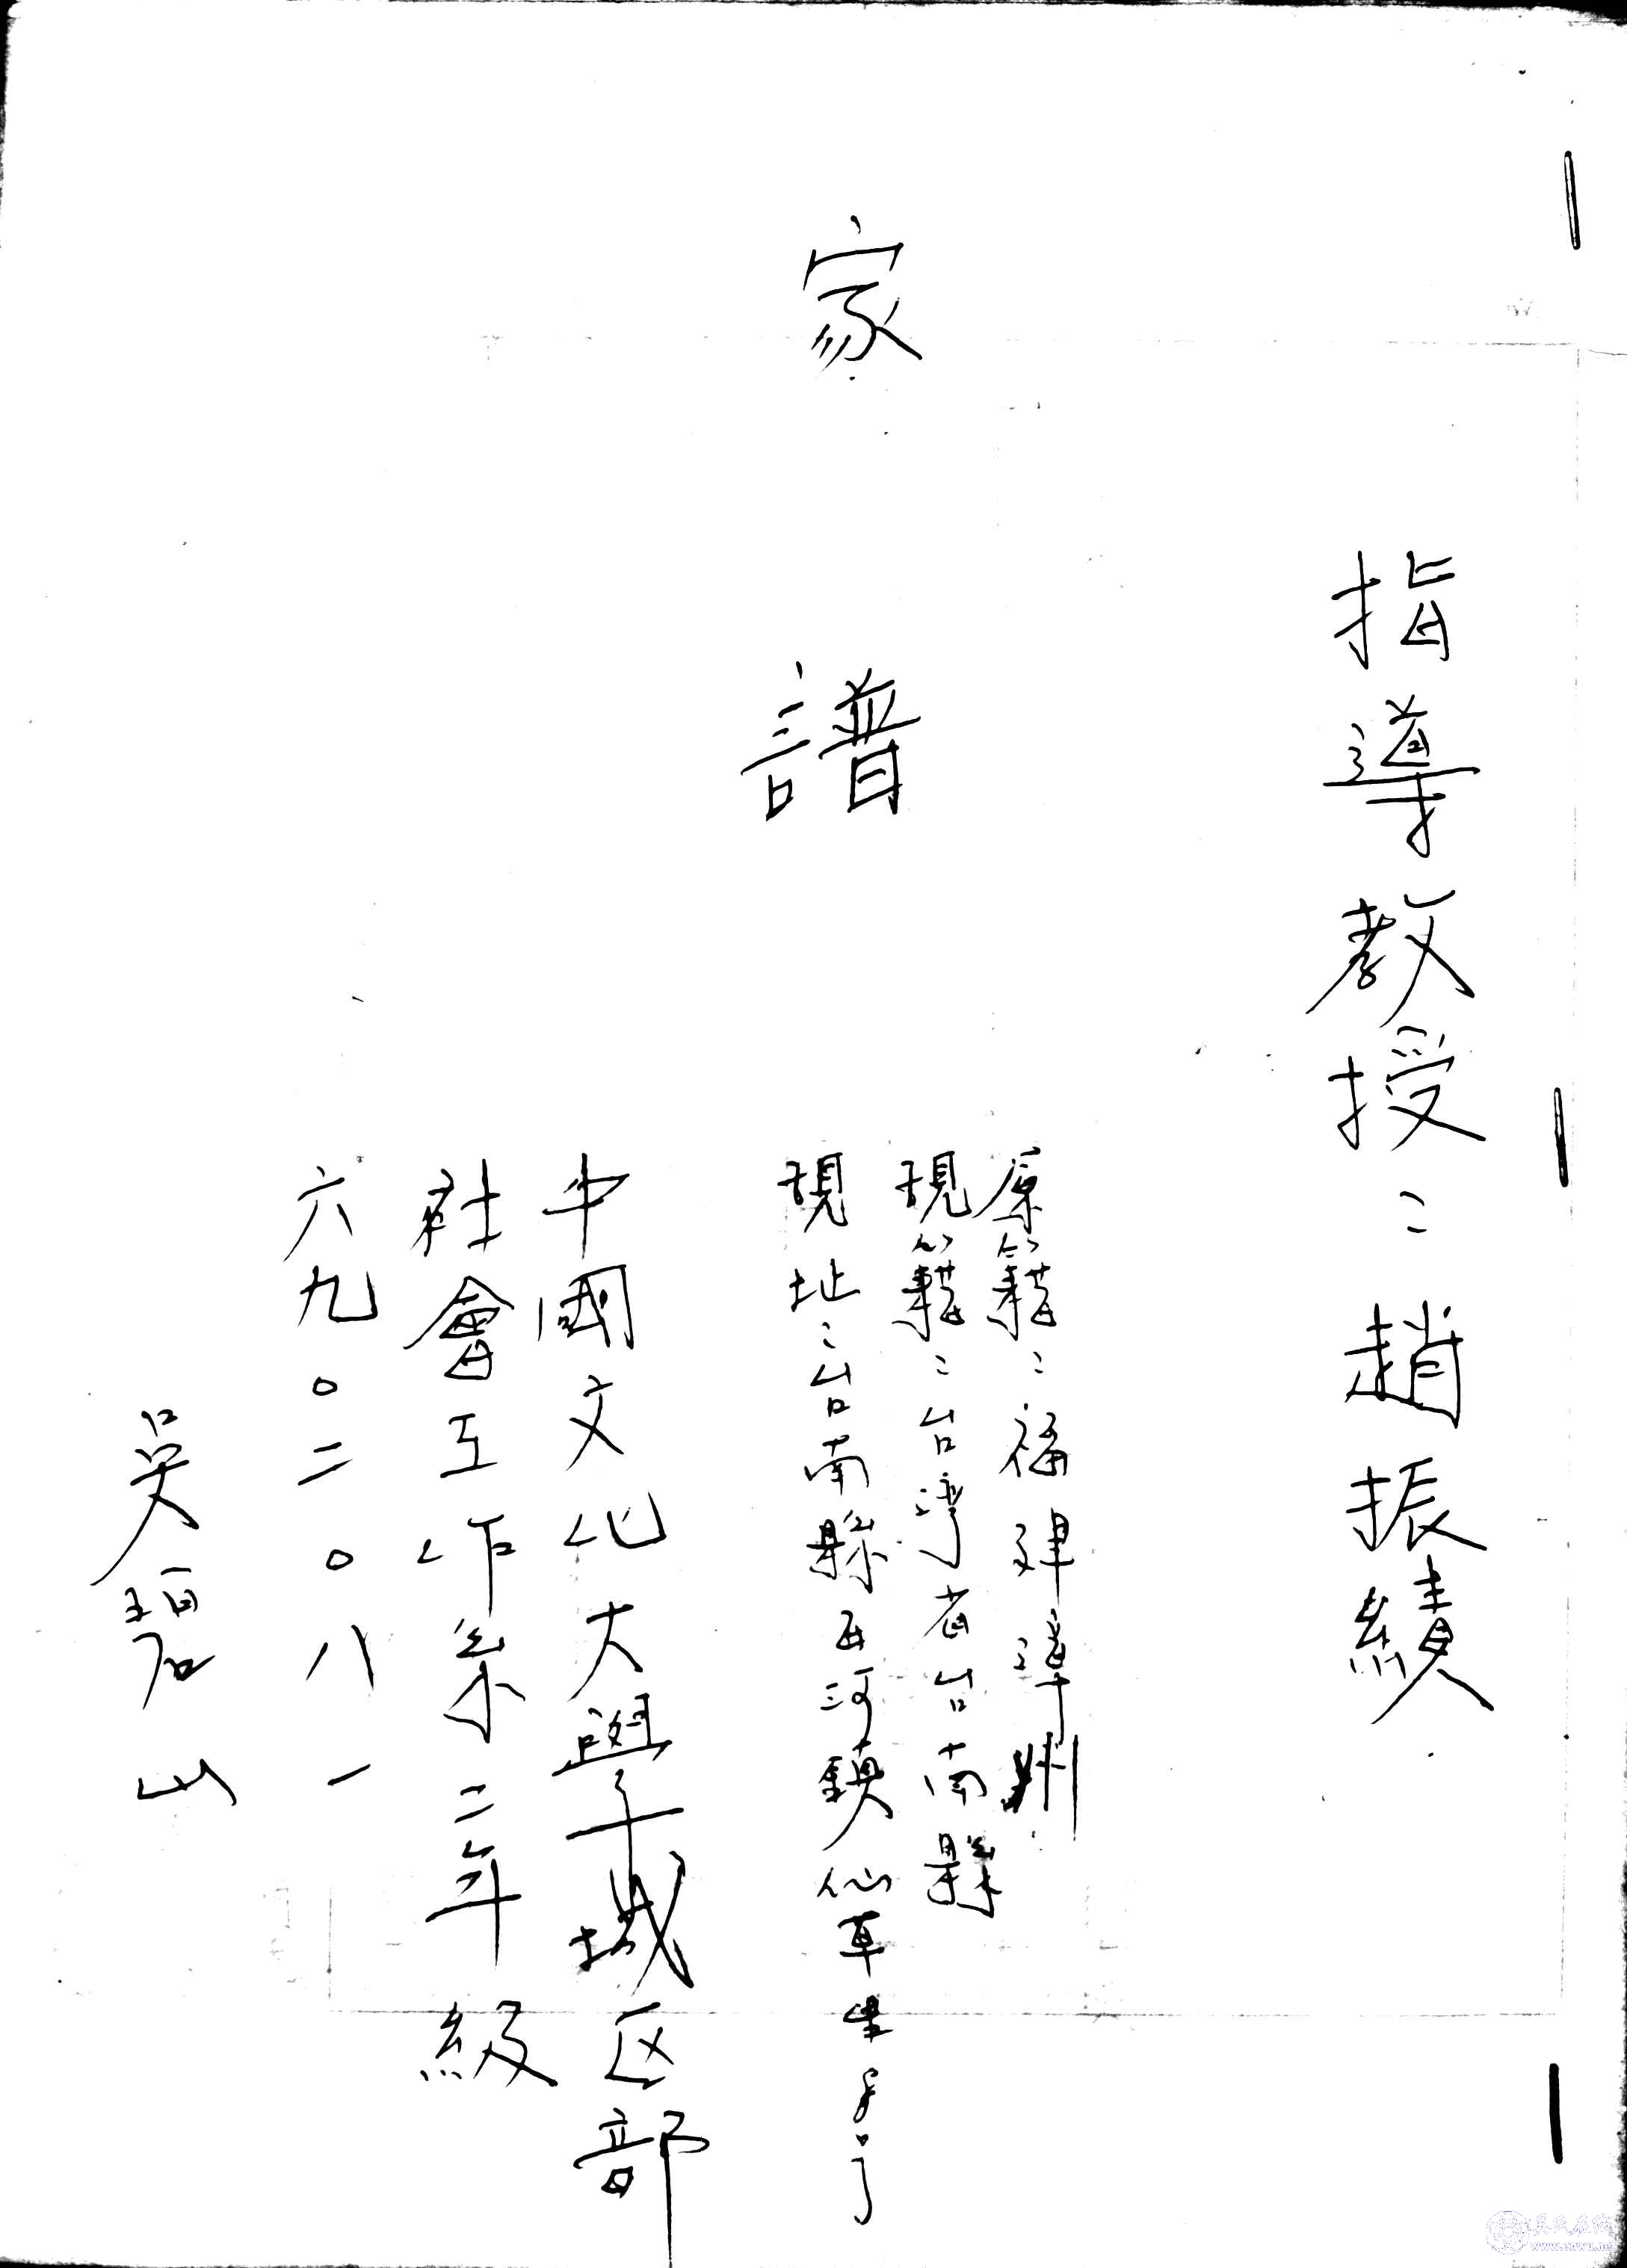 指導教授：趙振績
家譜
原籍：福建漳州
現籍：台灣省台南縣
現址：台南縣白河鎮仙草里
中國文化大學城区部
社會工作系二年級
六九〇二〇八一
吳碧山
www.